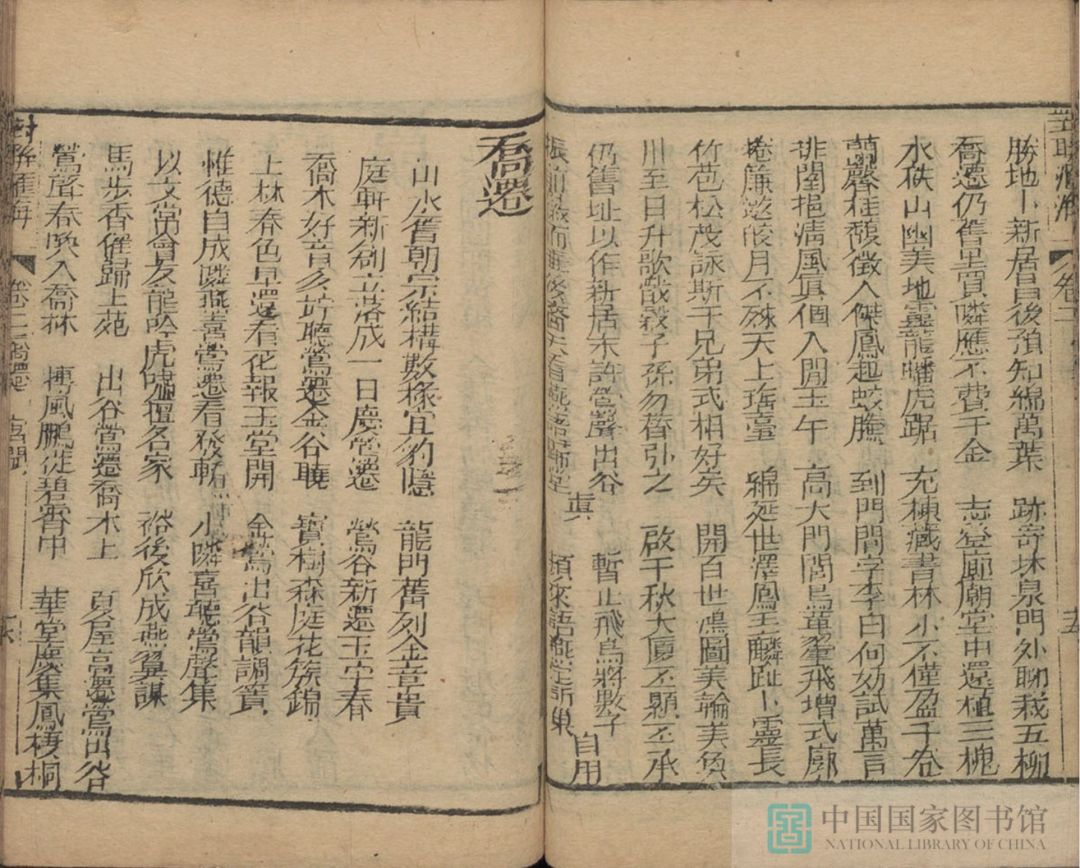 卷二
勝地卜新居昌後預知綿萬葉 跡寄林泉門外聊栽五柳
喬遷仍舊里買隣應不費千金 志登廊廟堂中還植三槐
水秩山幽美地靈龍蟠虎踞 充棟藏書林小不僅盈千卷
蘭馨桂馥徵人傑鳳起蛟騰 到門問字李白何妨試萬言
排闥挹清風真個入閒王午 高大門閭鳥革翬飛增式廓
捲簾邀皎月不殊天上瑤臺 綿延世澤鳳毛麟趾卜靈長
竹苞松茂詠斯干兄弟式相好矣 開百世鴻圖美輪美奐
川至日升歌戩穀子孫勿替引之 啟千秋大厦丕顯丕承
仍舊址以作新居不許鶯聲出谷 暫止飛鳥將數子 自用
頻來語燕定新巢
喬遷
山水舊朝宗結構數椽宜豹隱 龍門舊列金章貴
庭軒新創立落成一日慶鶯遷 鶯谷新遷玉室春
喬木好音多近聽鶯遷金谷曉 寶樹森庭花簇錦
上林春色早還看花報玉堂開 金鶯出谷韻調簧
惟德自成隣燕喜鶯遷看發軔 小隣喜聽鶯聲集
以文常會友龍吟虎嘯擅名家 裕後欣成燕翼謀
馬步香催歸上苑 出谷鶯遷喬木上 夏屋高遷鶯出谷
鶯聲春喚入喬林 摶風鵬徙碧霄中 華堂慶集鳳棲桐
對聯匯海 卷二 喬遷
中国国家图书馆
NATIONAL LIBRARY OF CHINA